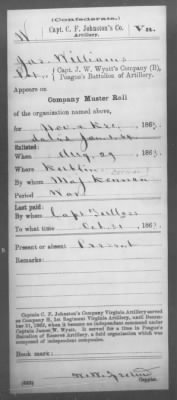 (Confederate.)
W
Capt. C. F. Johnston's Co.
Artillery.
Va.
Jas. Williams
Pvt., { Capt. J. W. Wyatt's Company (B),
Poague's Battalion of Artillery.
Appears on
Company Muster Roll
of the organization named above,
for Nov & Dec, 186
dated
Enlisted:
When Aug 29, 186
Where
By whom Maj
Period War
Last paid:
By whom Capt
To what time Oct 31, 186
Present or absent Present
Remarks:
Captain C. F. Johnston's Company Virginia Artillery served
as Company B, 1st Regiment Virginia Artillery, until Decem-
ber 31, 1862, when it became an independent command under
Captain James W. Wyatt. It served for a time in Poague's
Battalion of Reserve Artillery, a field organization which was
composed of independent companies.
Book mark:
(642)
Copyist.